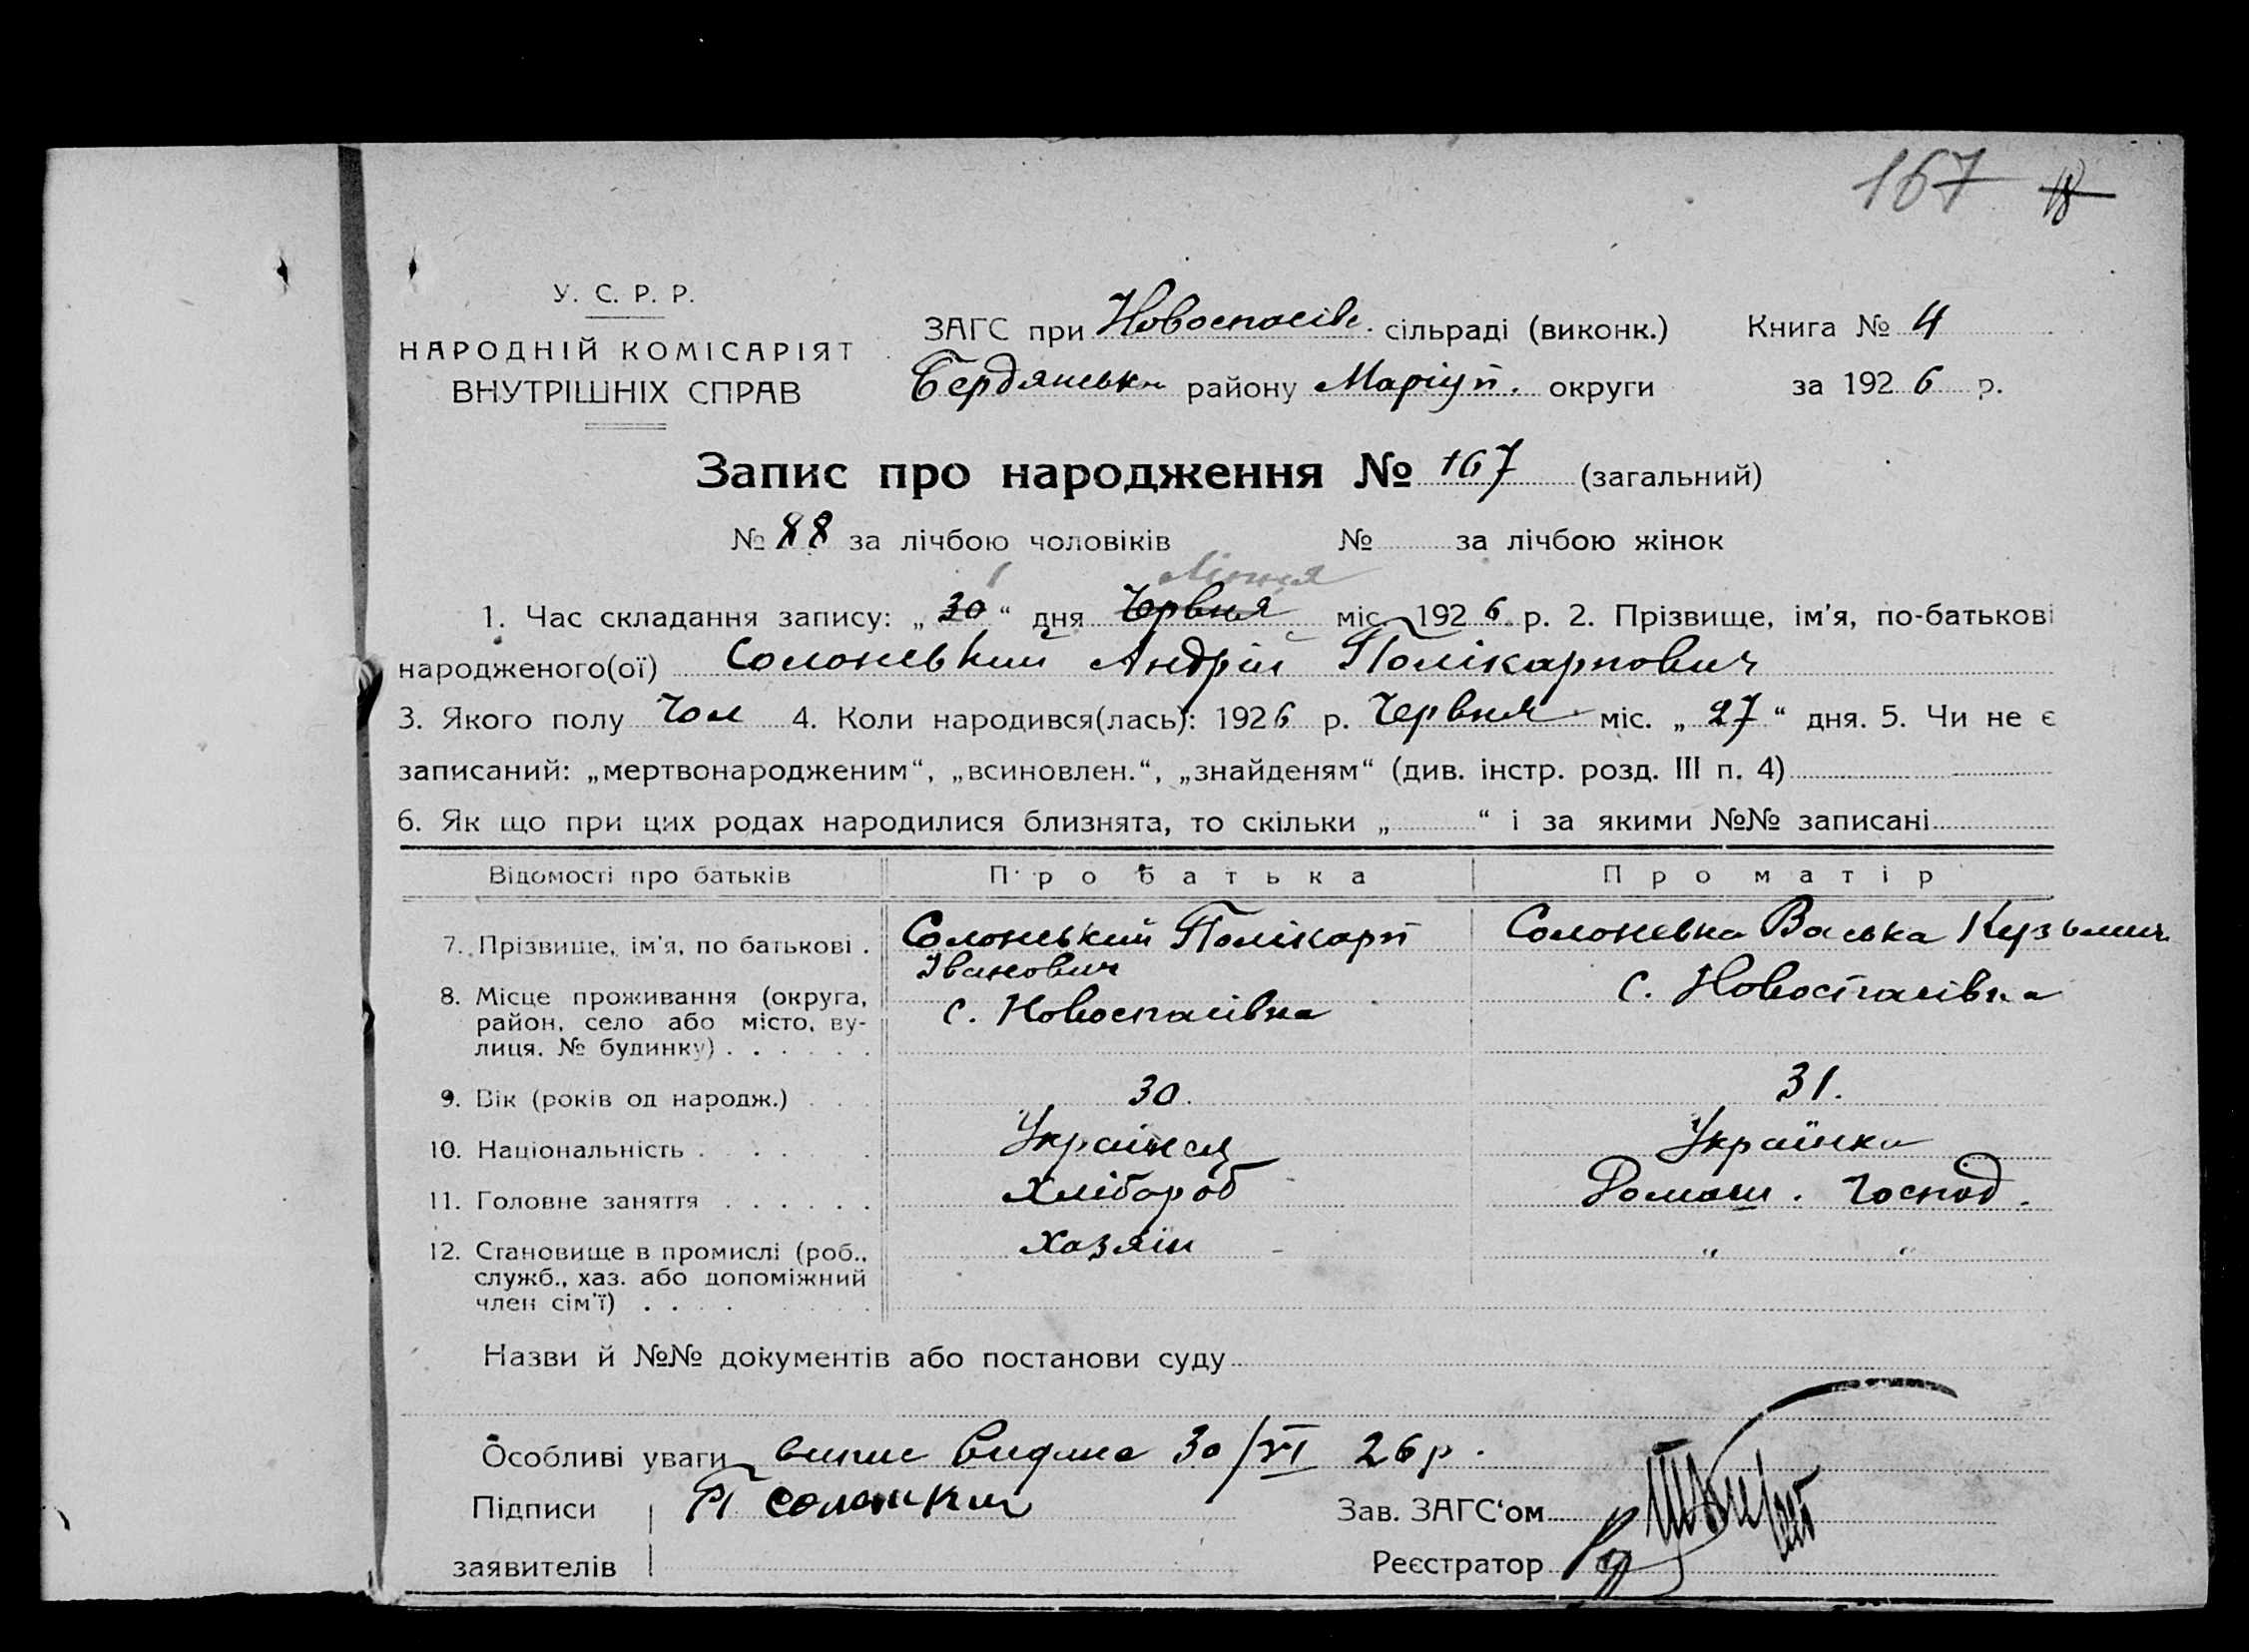 167 18
У. С. Р. Р.
НАРОДНІЙ КОМІСАРІЯТ
ВНУТРІШНІХ СПРАВ
ЗАГС при Новоспасівс. сільраді (виконк.) Книга № 4
Бердянськ району Маріуп. округи за 1926 р.
Запис про народження № 167 (загальний)
№ 88 за лічбою чоловіків № за лічбою жінок
1 Липня
1. Час складання запису: „30“ дня Червня міс. 1926 р. 2. Прізвище, ім'я, по-батькові
народженого(ої) Солонський Андрій Полікарпович
3. Якого полу Чол 4. Коли народився(лась): 1926 р. Червня міс. „27“ дня. 5. Чи не є
записаний: „мертвонародженим“, „всиновлен.“, „знайденям“ (див. інстр. розд. III п. 4)
6. Як що при цих родах народилися близнята, то скільки „ “ і за якими №№ записані
Відомості про батьків Про батька Про матір
7. Прізвище, ім'я, по батькові . Солонський Полікарп Іванович Солоневна Васька Кузьмич.
8. Місце проживання (округа, район, село або місто, вулиця. № будинку) . . . . . . с. Новоспасівка с. Новоспасівка
9. Вік (років од народж.) . . . 30. 31.
10. Національність . . . . . Українец Українка
11. Головне заняття . . . . . . Хлібороб Домаш. господ.
12. Становище в промислі (роб., служб., хаз. або допоміжний член сім'ї) . . . Хазяїн " "
Назви й №№ документів або постанови суду
Особливі уваги випис видана 30/VI 26 р.
Підписи П Солонкий Зав. ЗАГС‘ом
заявителів Реєстратор